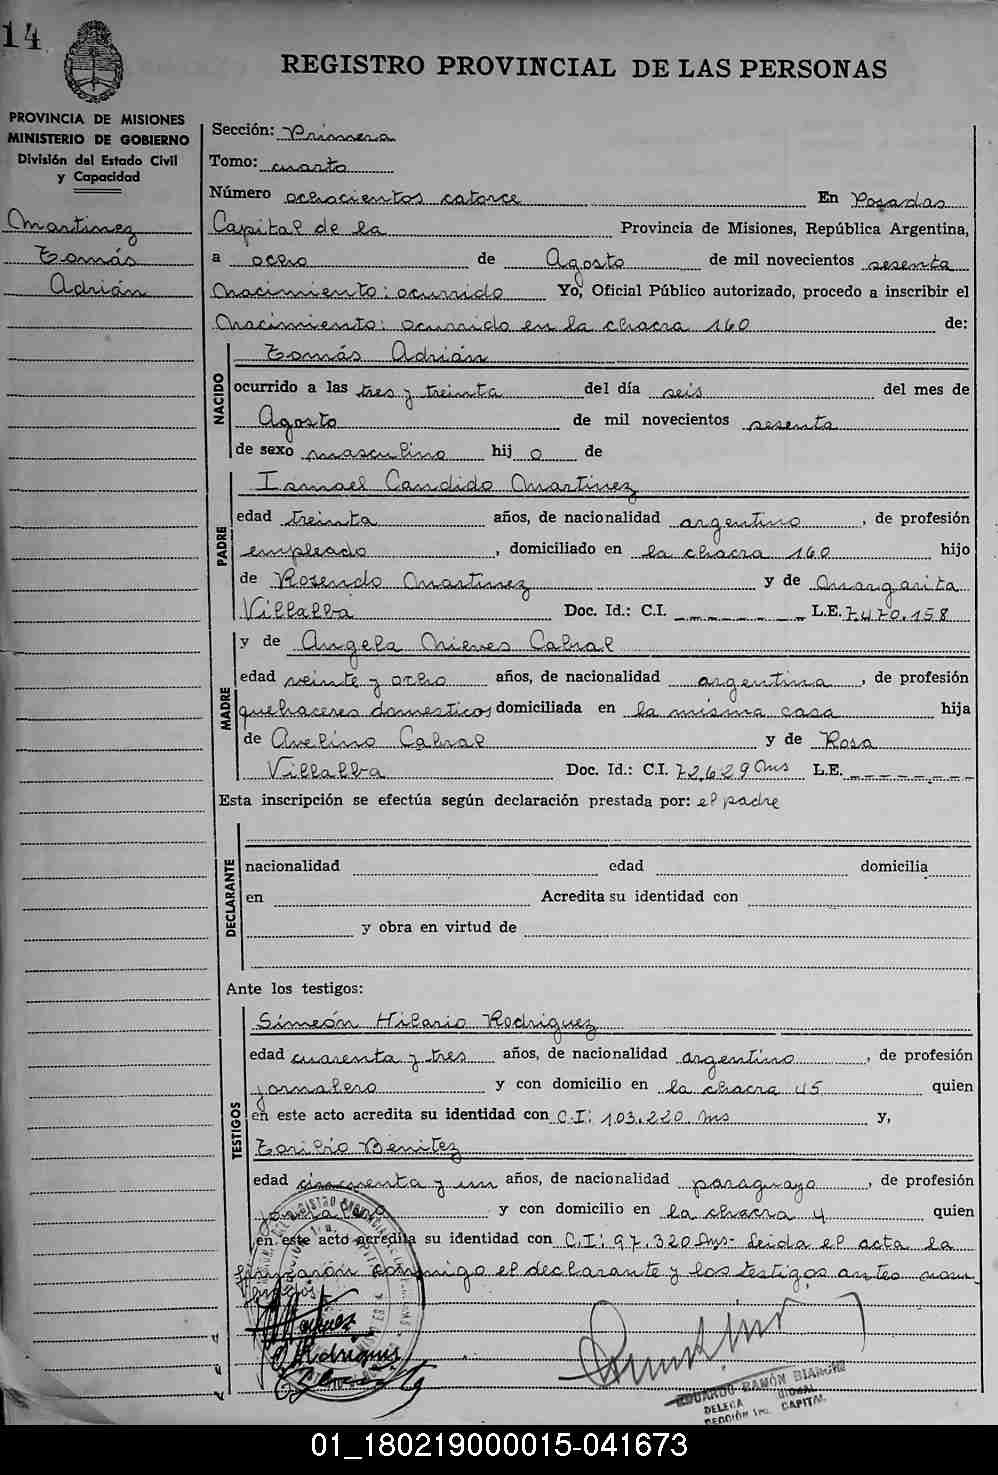 14
REGISTRO PROVINCIAL DE LAS PERSONAS
PROVINCIA DE MISIONES
MINISTERIO DE GOBIERNO
División del Estado Civil
y Capacidad
Martinez
Tomás
Adrián
Sección: Primera
Tomo: cuarto
Número ochocientos catorce En Posadas
Capital de la Provincia de Misiones, República Argentina,
a ocho de Agosto de mil novecientos sesenta
Nacimiento: ocurrido Yo, Oficial Público autorizado, procedo a inscribir el
Nacimiento: ocurrido en la chacra 160 de:
NACIDO
Tomás Adrián
ocurrido a las tres y treinta del día seis del mes de
Agosto de mil novecientos sesenta
de sexo masculino hij o de
PADRE
Ismael Candido Martinez
edad treinta años, de nacionalidad argentino, de profesión
empleado, domiciliado en la chacra 160 hijo
de Rosendo Martinez y de Margarita
Villalba Doc. Id.: C.I. L.E. 7.470.158
MADRE
y de Angela Nieves Cabral
edad veinte y ocho años, de nacionalidad argentina, de profesión
quehaceres domesticos domiciliada en la misma casa hija
de Avelino Cabral y de Rosa
Villalba Doc. Id.: C.I. 72.629 Mns L.E.
Esta inscripción se efectúa según declaración prestada por: el padre
DECLARANTE
nacionalidad edad domicilia
en Acredita su identidad con
y obra en virtud de
Ante los testigos:
TESTIGOS
Simeón Hilario Rodriguez
edad cuarenta y tres años, de nacionalidad argentino, de profesión
jornalero y con domicilio en la chacra 45 quien
en este acto acredita su identidad con C.I: 103.220 Mns y,
Toribio Benitez
edad cincuenta y un años, de nacionalidad paraguayo, de profesión
jornalero y con domicilio en la chacra 4 quien
en este acto acredita su identidad con C.I: 97.320 Mns- Leida el acta la
firmaron conmigo el declarante y los testigos antes nom
EDUARDO RAMÓN BIANCHI
SECCIÓN 1ra. CAPITAL
01_180219000015-041673